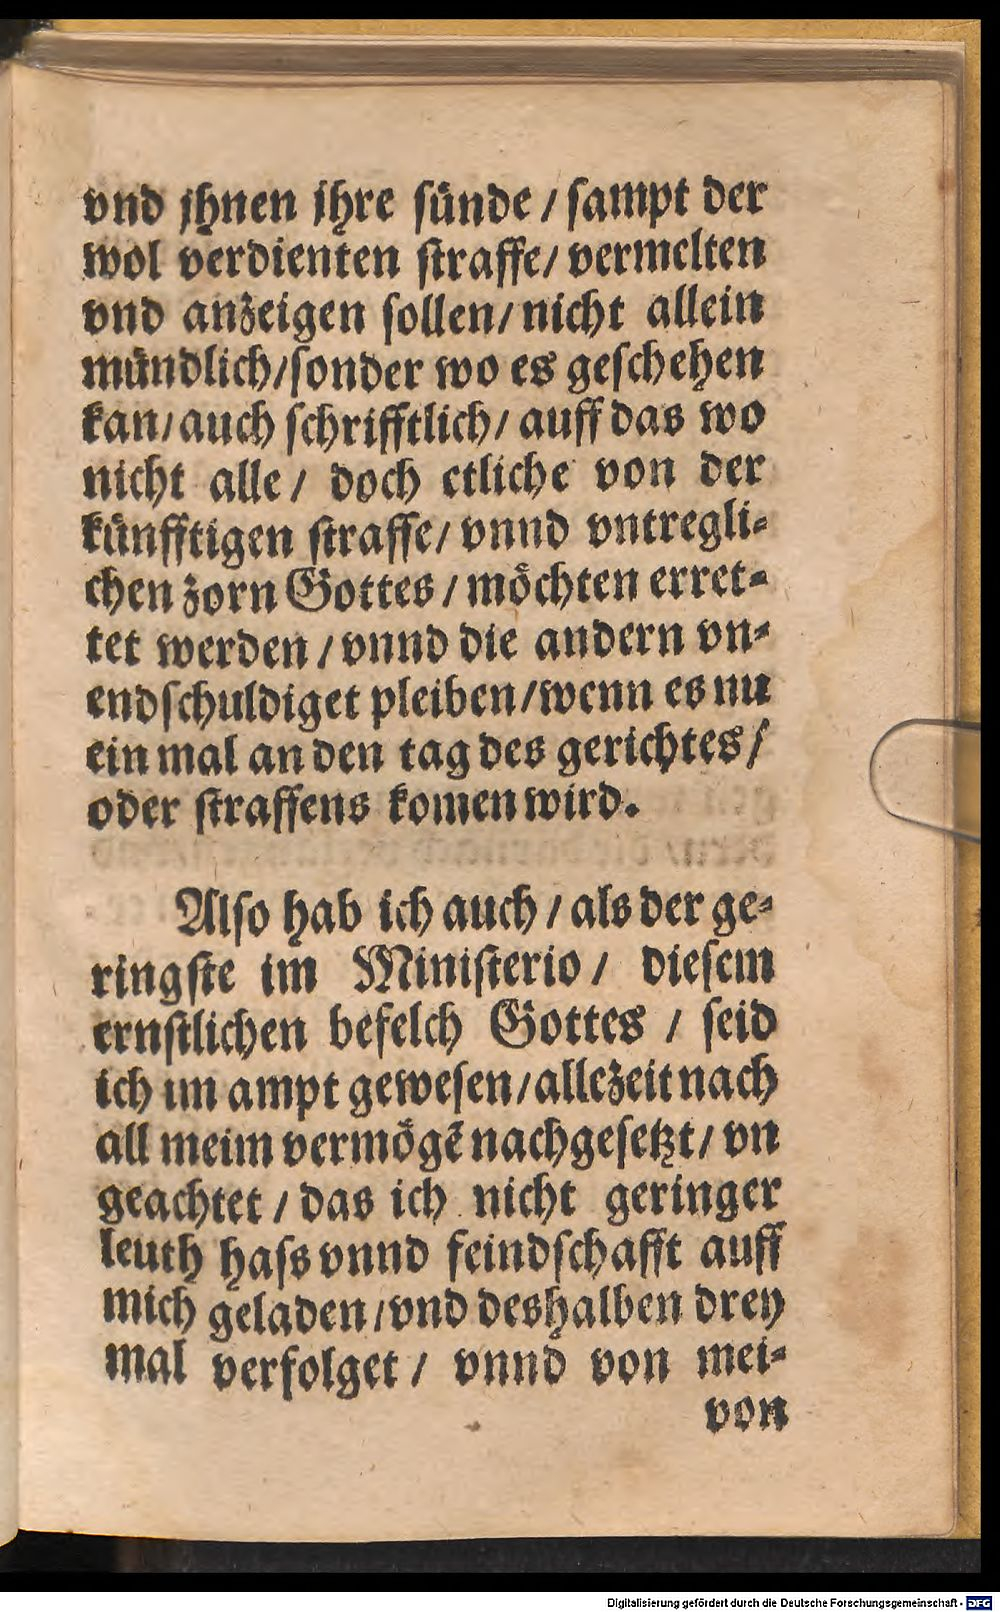 vnd jhnen jhre ſünde / ſampt der
wol verdienten ſtraffe / vermelten
vnd anzeigen ſollen / nicht allein
mündlich / ſonder wo es geſchehen
kan / auch ſchrifftlich / auff das wo
nicht alle / doch etliche von der
künfftigen ſtraffe / vnnd vntregli-
chen zorn Gottes / möchten erret-
tet werden / vnnd die andern vn-
endſchuldiget pleiben / wenn es nu
ein mal an den tag des gerichtes /
oder ſtraffens komen wird.
Alſo hab ich auch / als der ge-
ringſte im Miniſterio / dieſem
ernſtlichen befelch Gottes / ſeid
ich im ampt geweſen / allezeit nach
all meim vermögẽ nachgeſetzt / vn
geachtet / das ich nicht geringer
leuth haſs vnnd feindſchafft auff
mich geladen / vnd deshalben drey
mal verfolget / vnnd von mei-
von
Digitalisierung gefördert durch die Deutsche Forschungsgemeinschaft - DFG